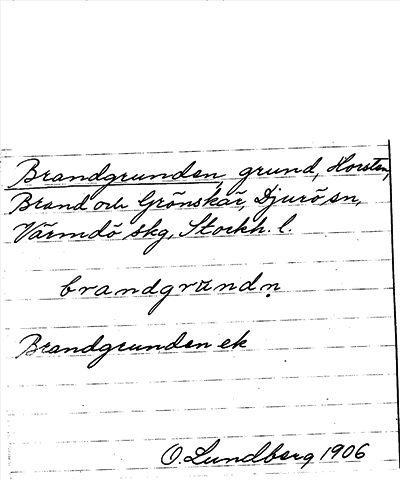 Brandgrunden, grund, Horsten,
Brand och Grönskär, Djurö sn,
Värmdö skg, Stockh. l.
brandgrundṇ
Brandgrunden ek
O. Lundberg 1906